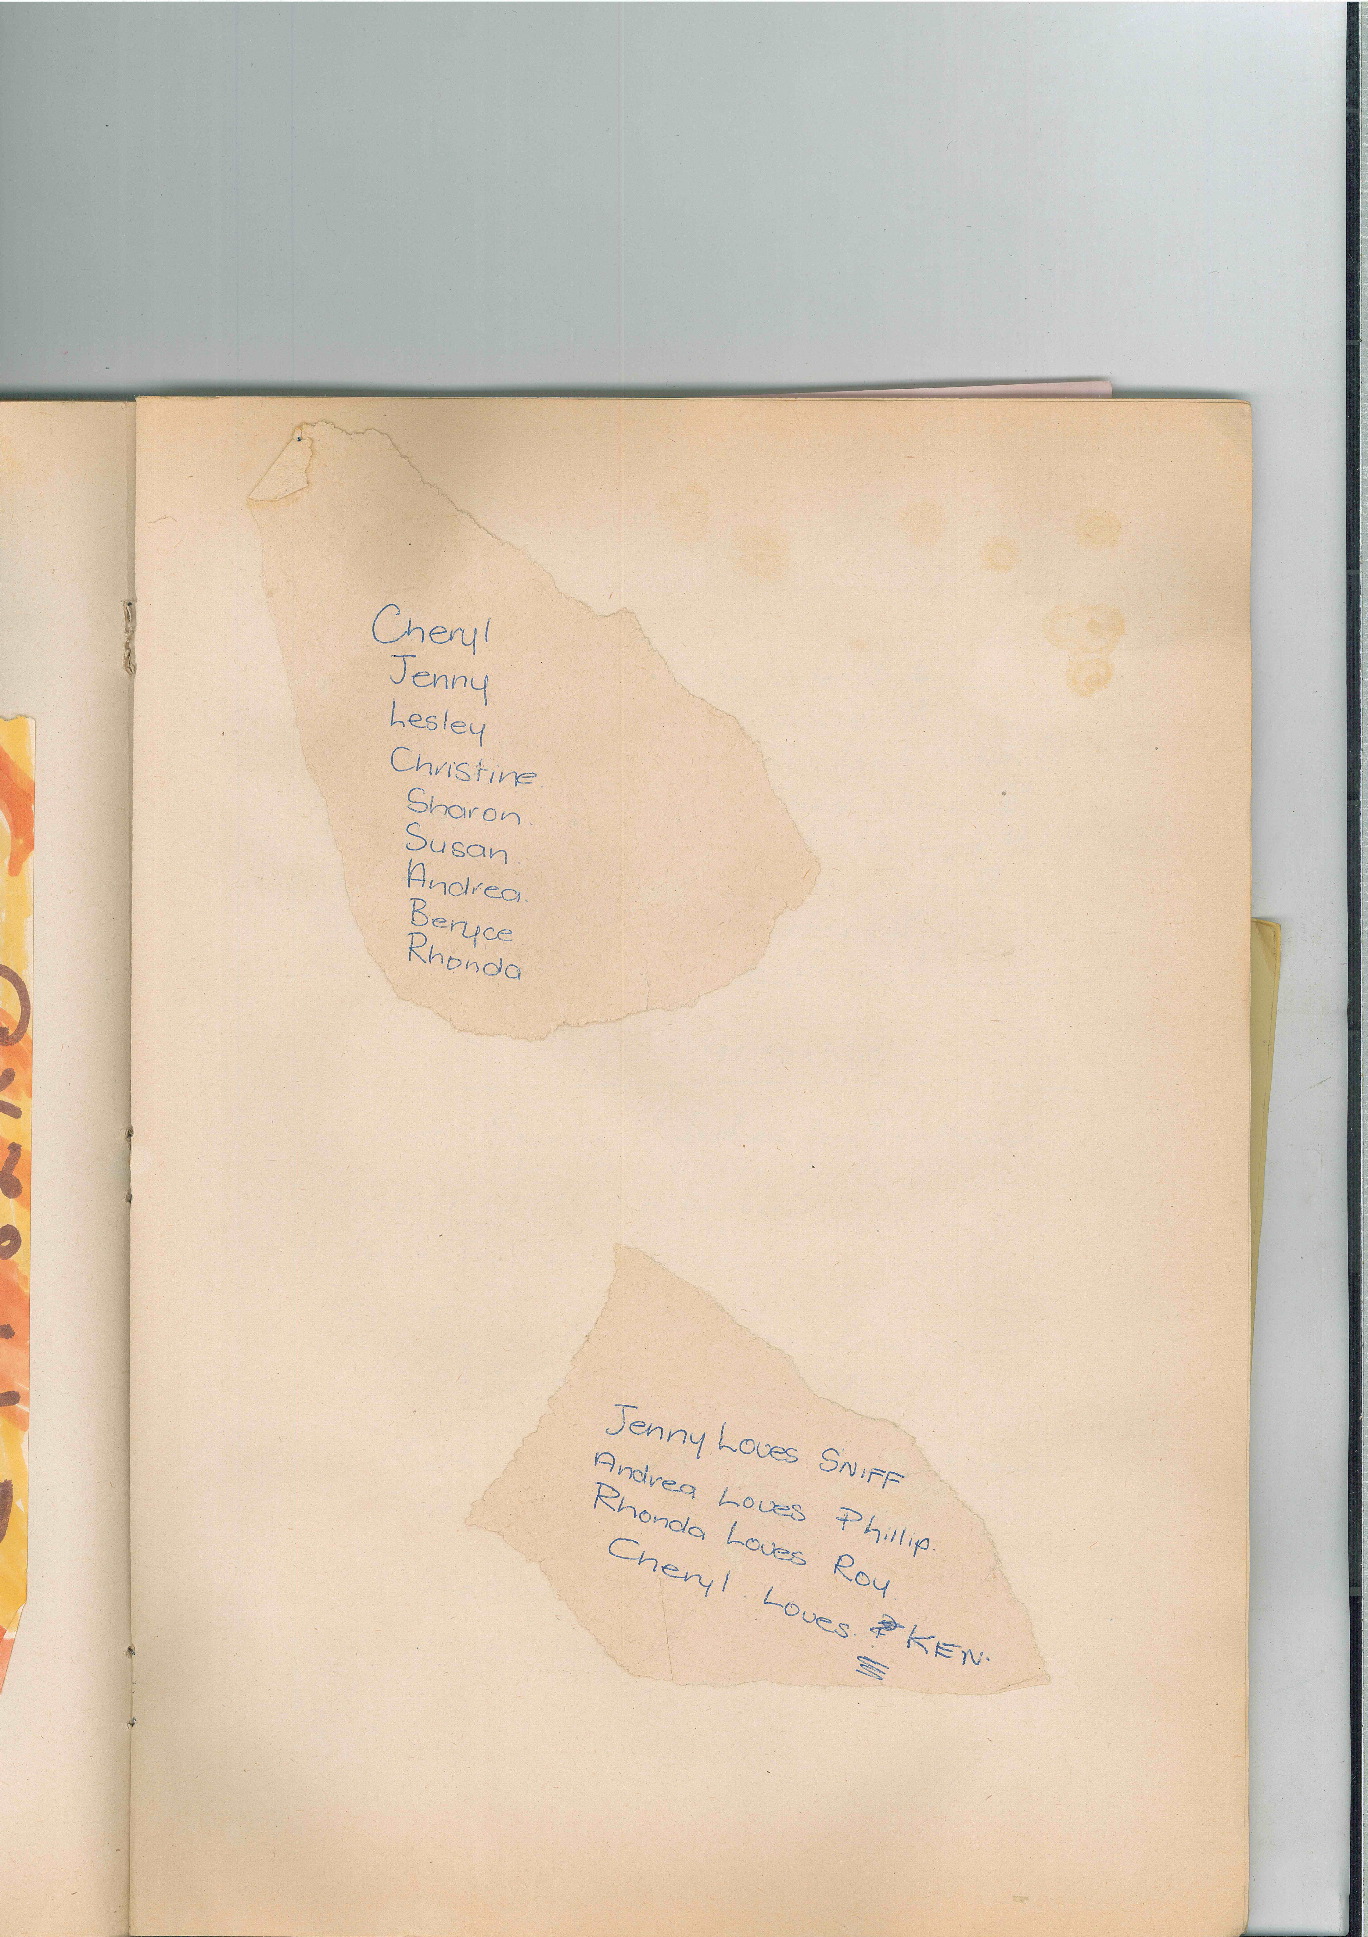 Cheryl
Jenny
Lesley
Christine
Sharon.
Susan.
Andrea.
Beryce
Rhonda
Jenny Loves SNIFF
Andrea Loves Phillip.
Rhonda Loves Roy
Cheryl Loves KEN.